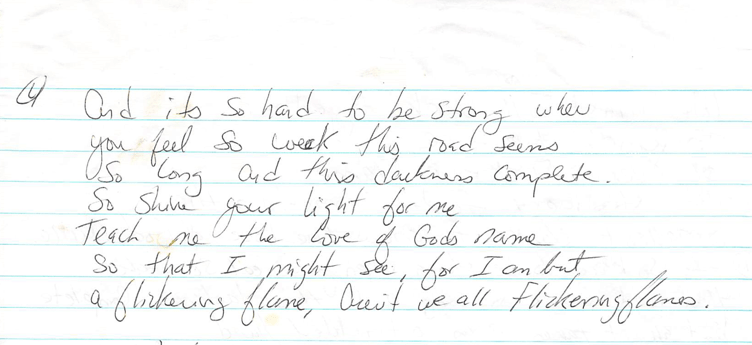 4) And its so hard to be strong when
you feel so weak this road seems
so long and this darkness complete.
So shine your light for me
Teach me the love of Gods name
So that I might see, for I am but
a flickering flame, Aren't we all flickering flames.